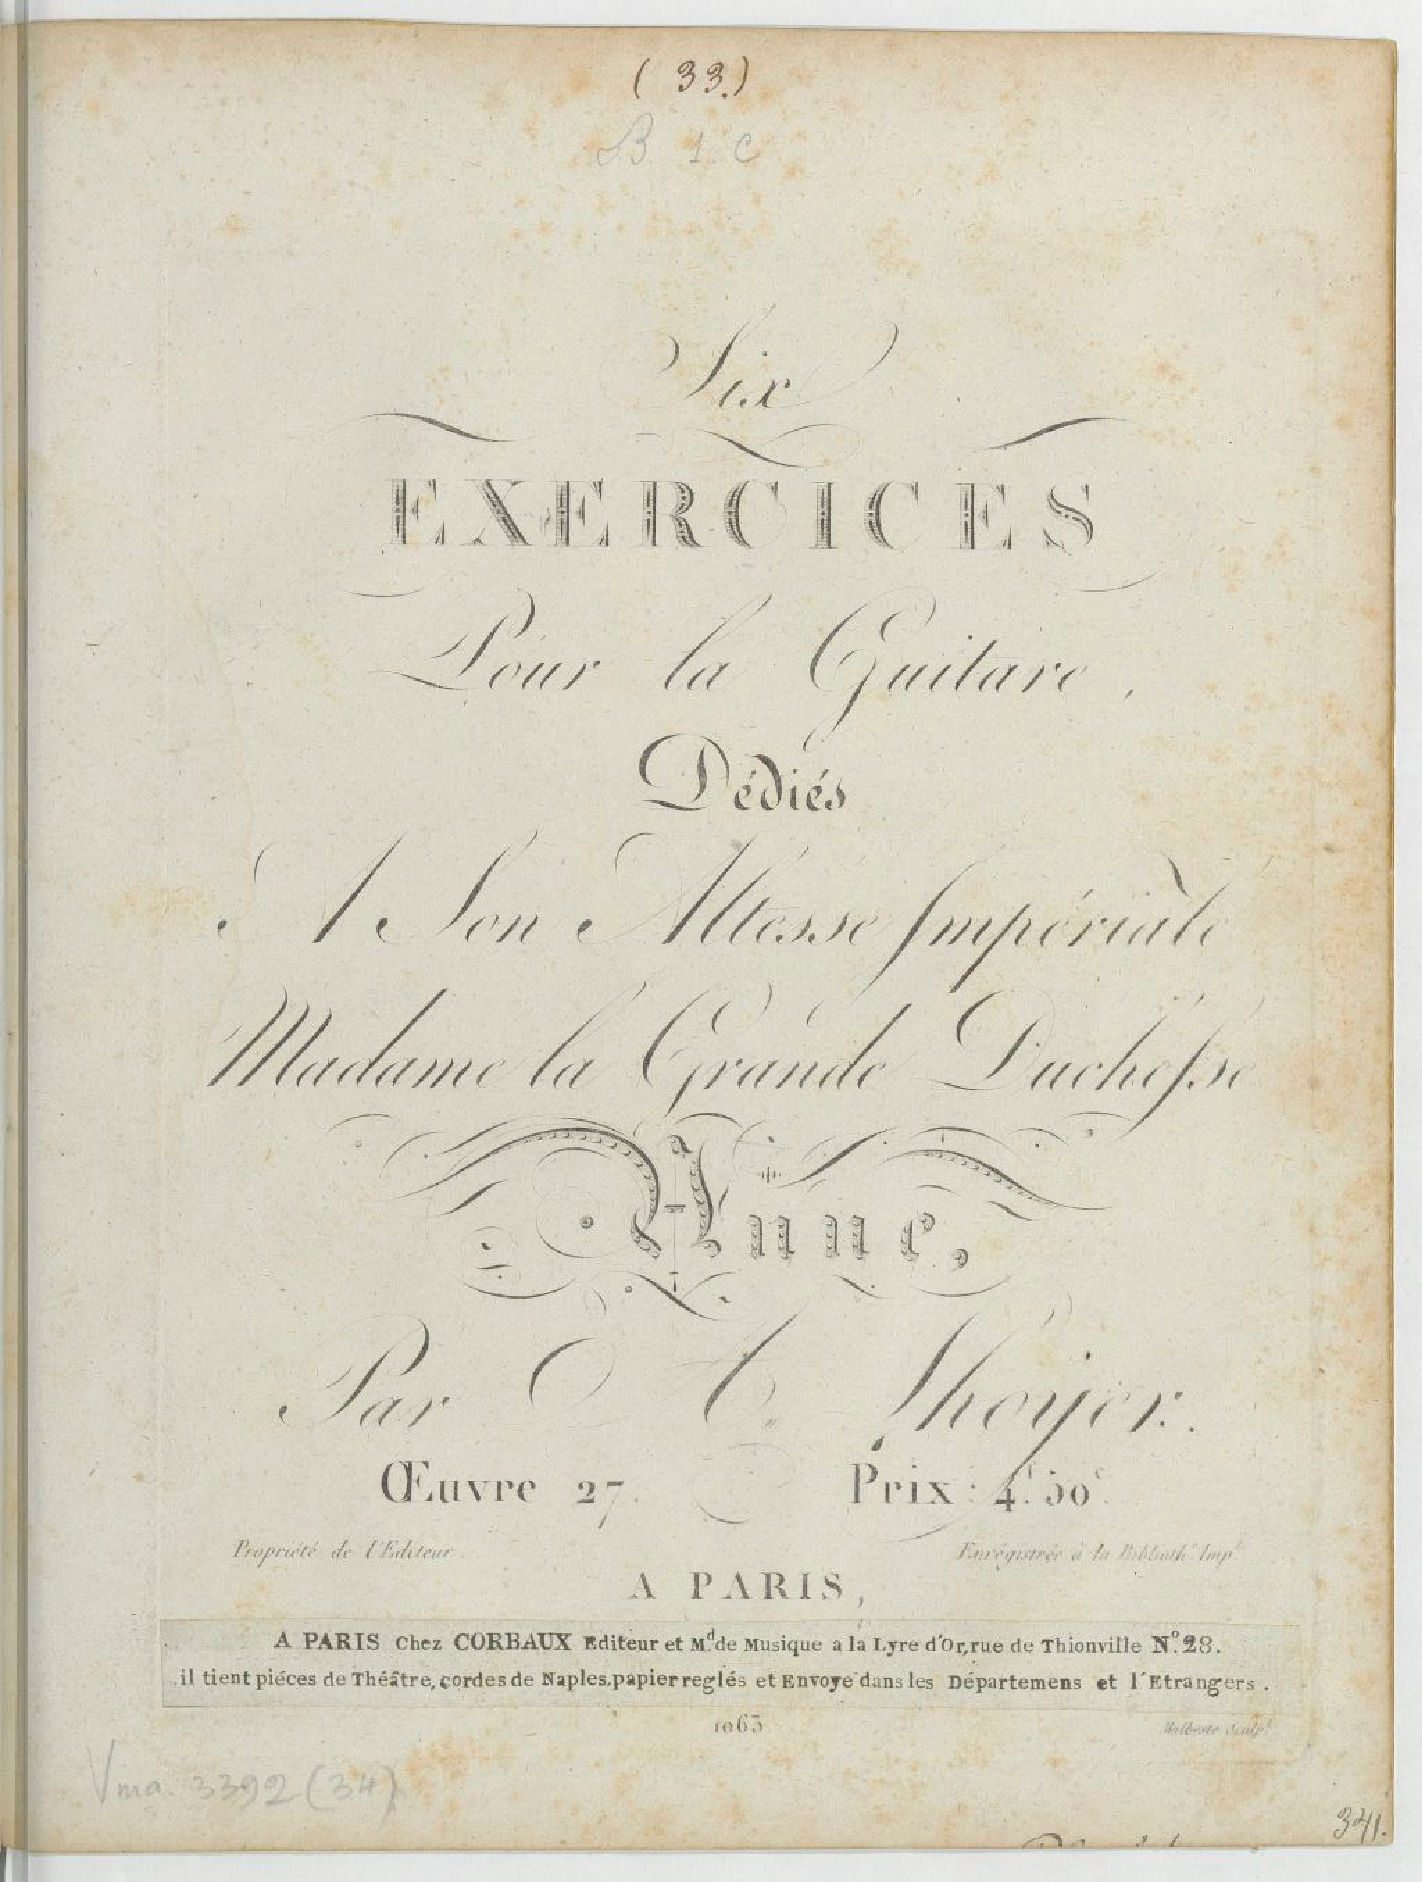 (33.)
B 1 C
Six
EXERCICES
Pour la Guitare,
Dédiés
A Son Altesse Impériale
Madame la Grande Duchesse
Anne,
Par A. Lhoyer.
Œuvre 27. Prix: 4f. 50c.
Propriété de l'Editeur. Enrégistrée à la Biblioth. Imple
A PARIS,
A PARIS Chez CORBAUX Editeur et Md. de Musique a la Lyre d'Or, rue de Thionville No. 28.
il tient piéces de Théâtre, cordes de Naples, papier reglés et Envoye dans les Départemens et l'Etrangers.
1063
Sculpt.
Vma. 3392 (34)
341.